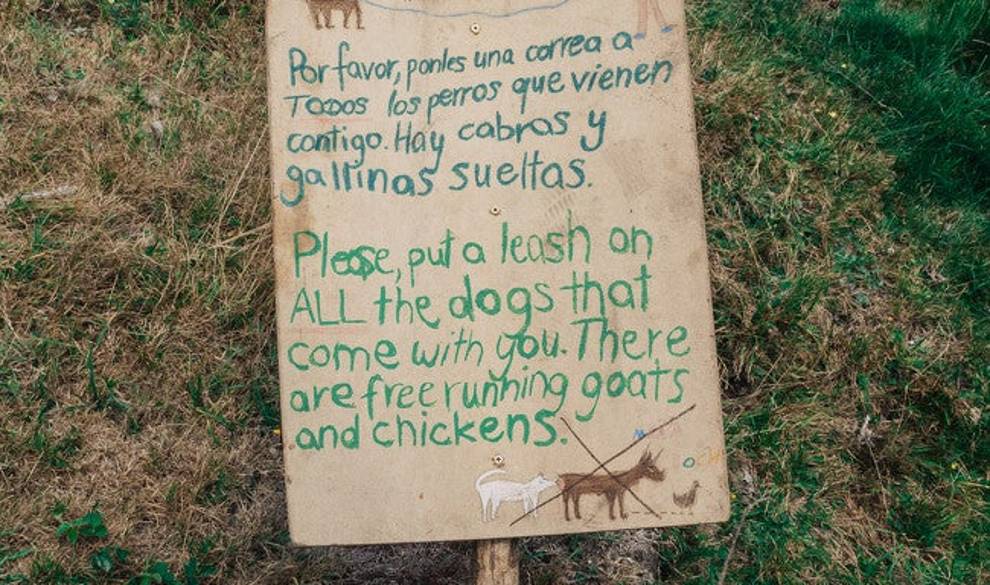 Por favor, ponles una correa a
TODOS los perros que vienen
contigo. Hay cabras y
gallinas sueltas.
Please, put a leash on
ALL the dogs that
come with you. There
are free running goats
and chickens.